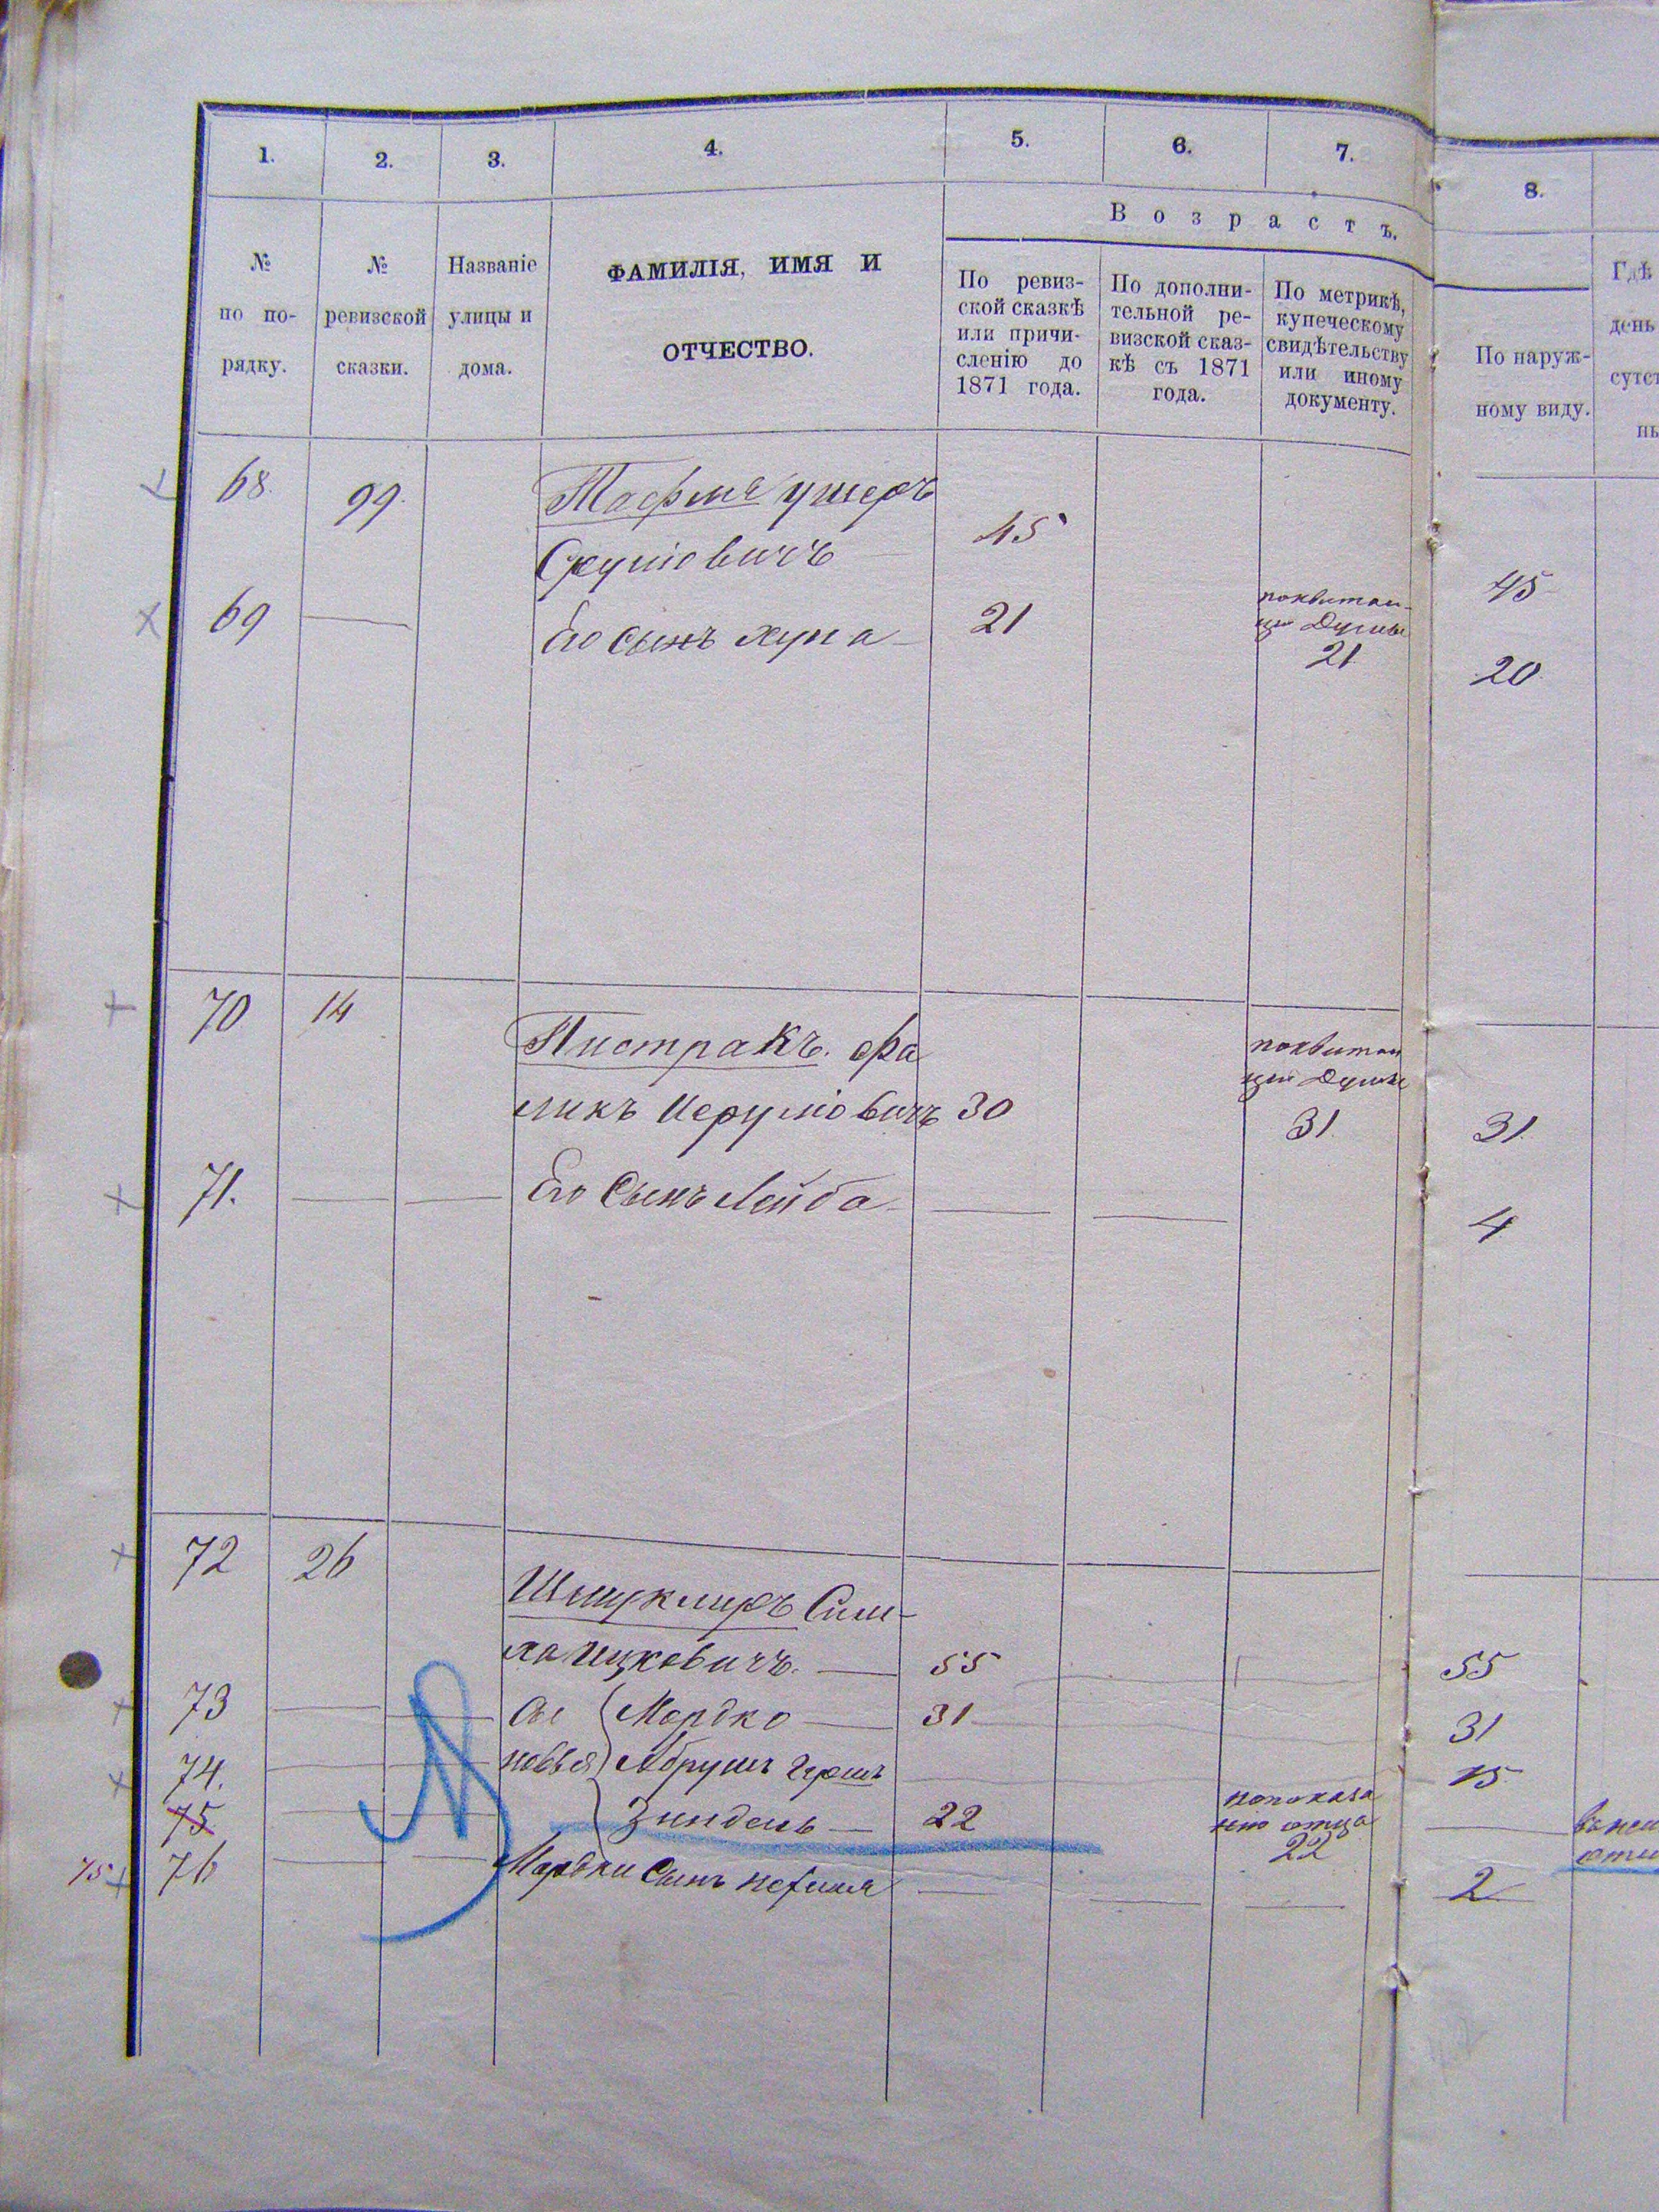 1. 2. 3. 4. 5. 6. 7. 8.
Возрастъ.
№ по по-
рядку.
№
ревизской
сказки.
Названіе
улицы и
дома.
ФАМИЛІЯ, ИМЯ И
ОТЧЕСТВО.
По ревиз-
ской сказкѣ
или причи-
сленію до
1871 года.
По дополни-
тельной ре-
визской сказ-
кѣ съ 1871
года.
По метрикѣ,
купеческому
свидѣтельству
или иному
документу.
По наруж-
ному виду.
Гдѣ
день
сутст
68. 99.
Ушеръ
45 45
69 Его сынъ Хуна 21
поквитан-
ціи Думы
21
20
70 14 Пистракъ. Фа
ликъ Иерумовичъ 30
поквитан
ціи Думы
31 31.
71. Его Сынъ Лейба 4
72 26
Шмуклиръ Сим-
ха Ицковичъ. 55 55
73 Сы Мордко 31 31
74. новья Абрумъ Гершъ 15
75 Зиндель 22
попоказа
нію отца
22
75 76 Мордки Сынъ 2